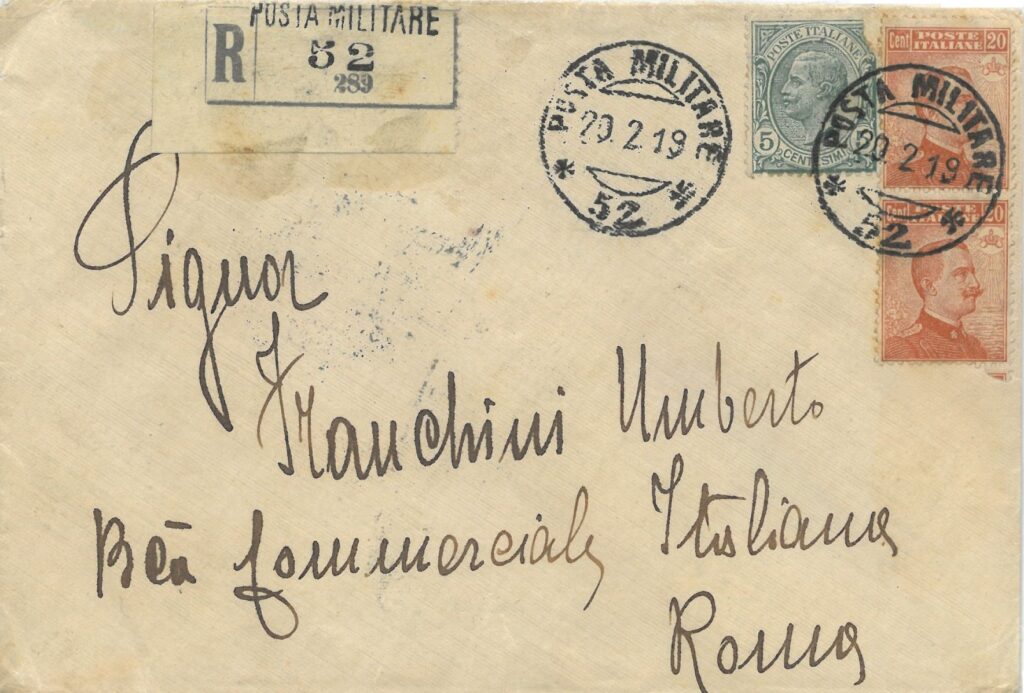 POSTA MILITARE
R 52
289
POSTA MILITARE
20.2.19
52
POSTE ITALIANE
5
CENTESIMI
Cent POSTE 20
ITALIANE
POSTA MILITARE
20.2.19
52
Cent POSTE 20
ITALIANE
Signor
Franchini Umberto
Bca Commerciale Italiana
Roma